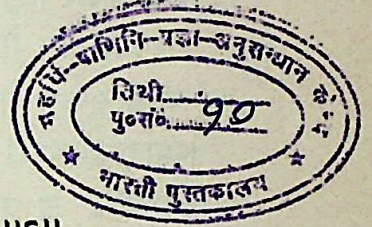 महर्षि-पाणिनि-प्रज्ञा-अनुसन्धान केन्द्र
तिथी..........
पु०सं०......90
★ भारती पुस्तकालय ★